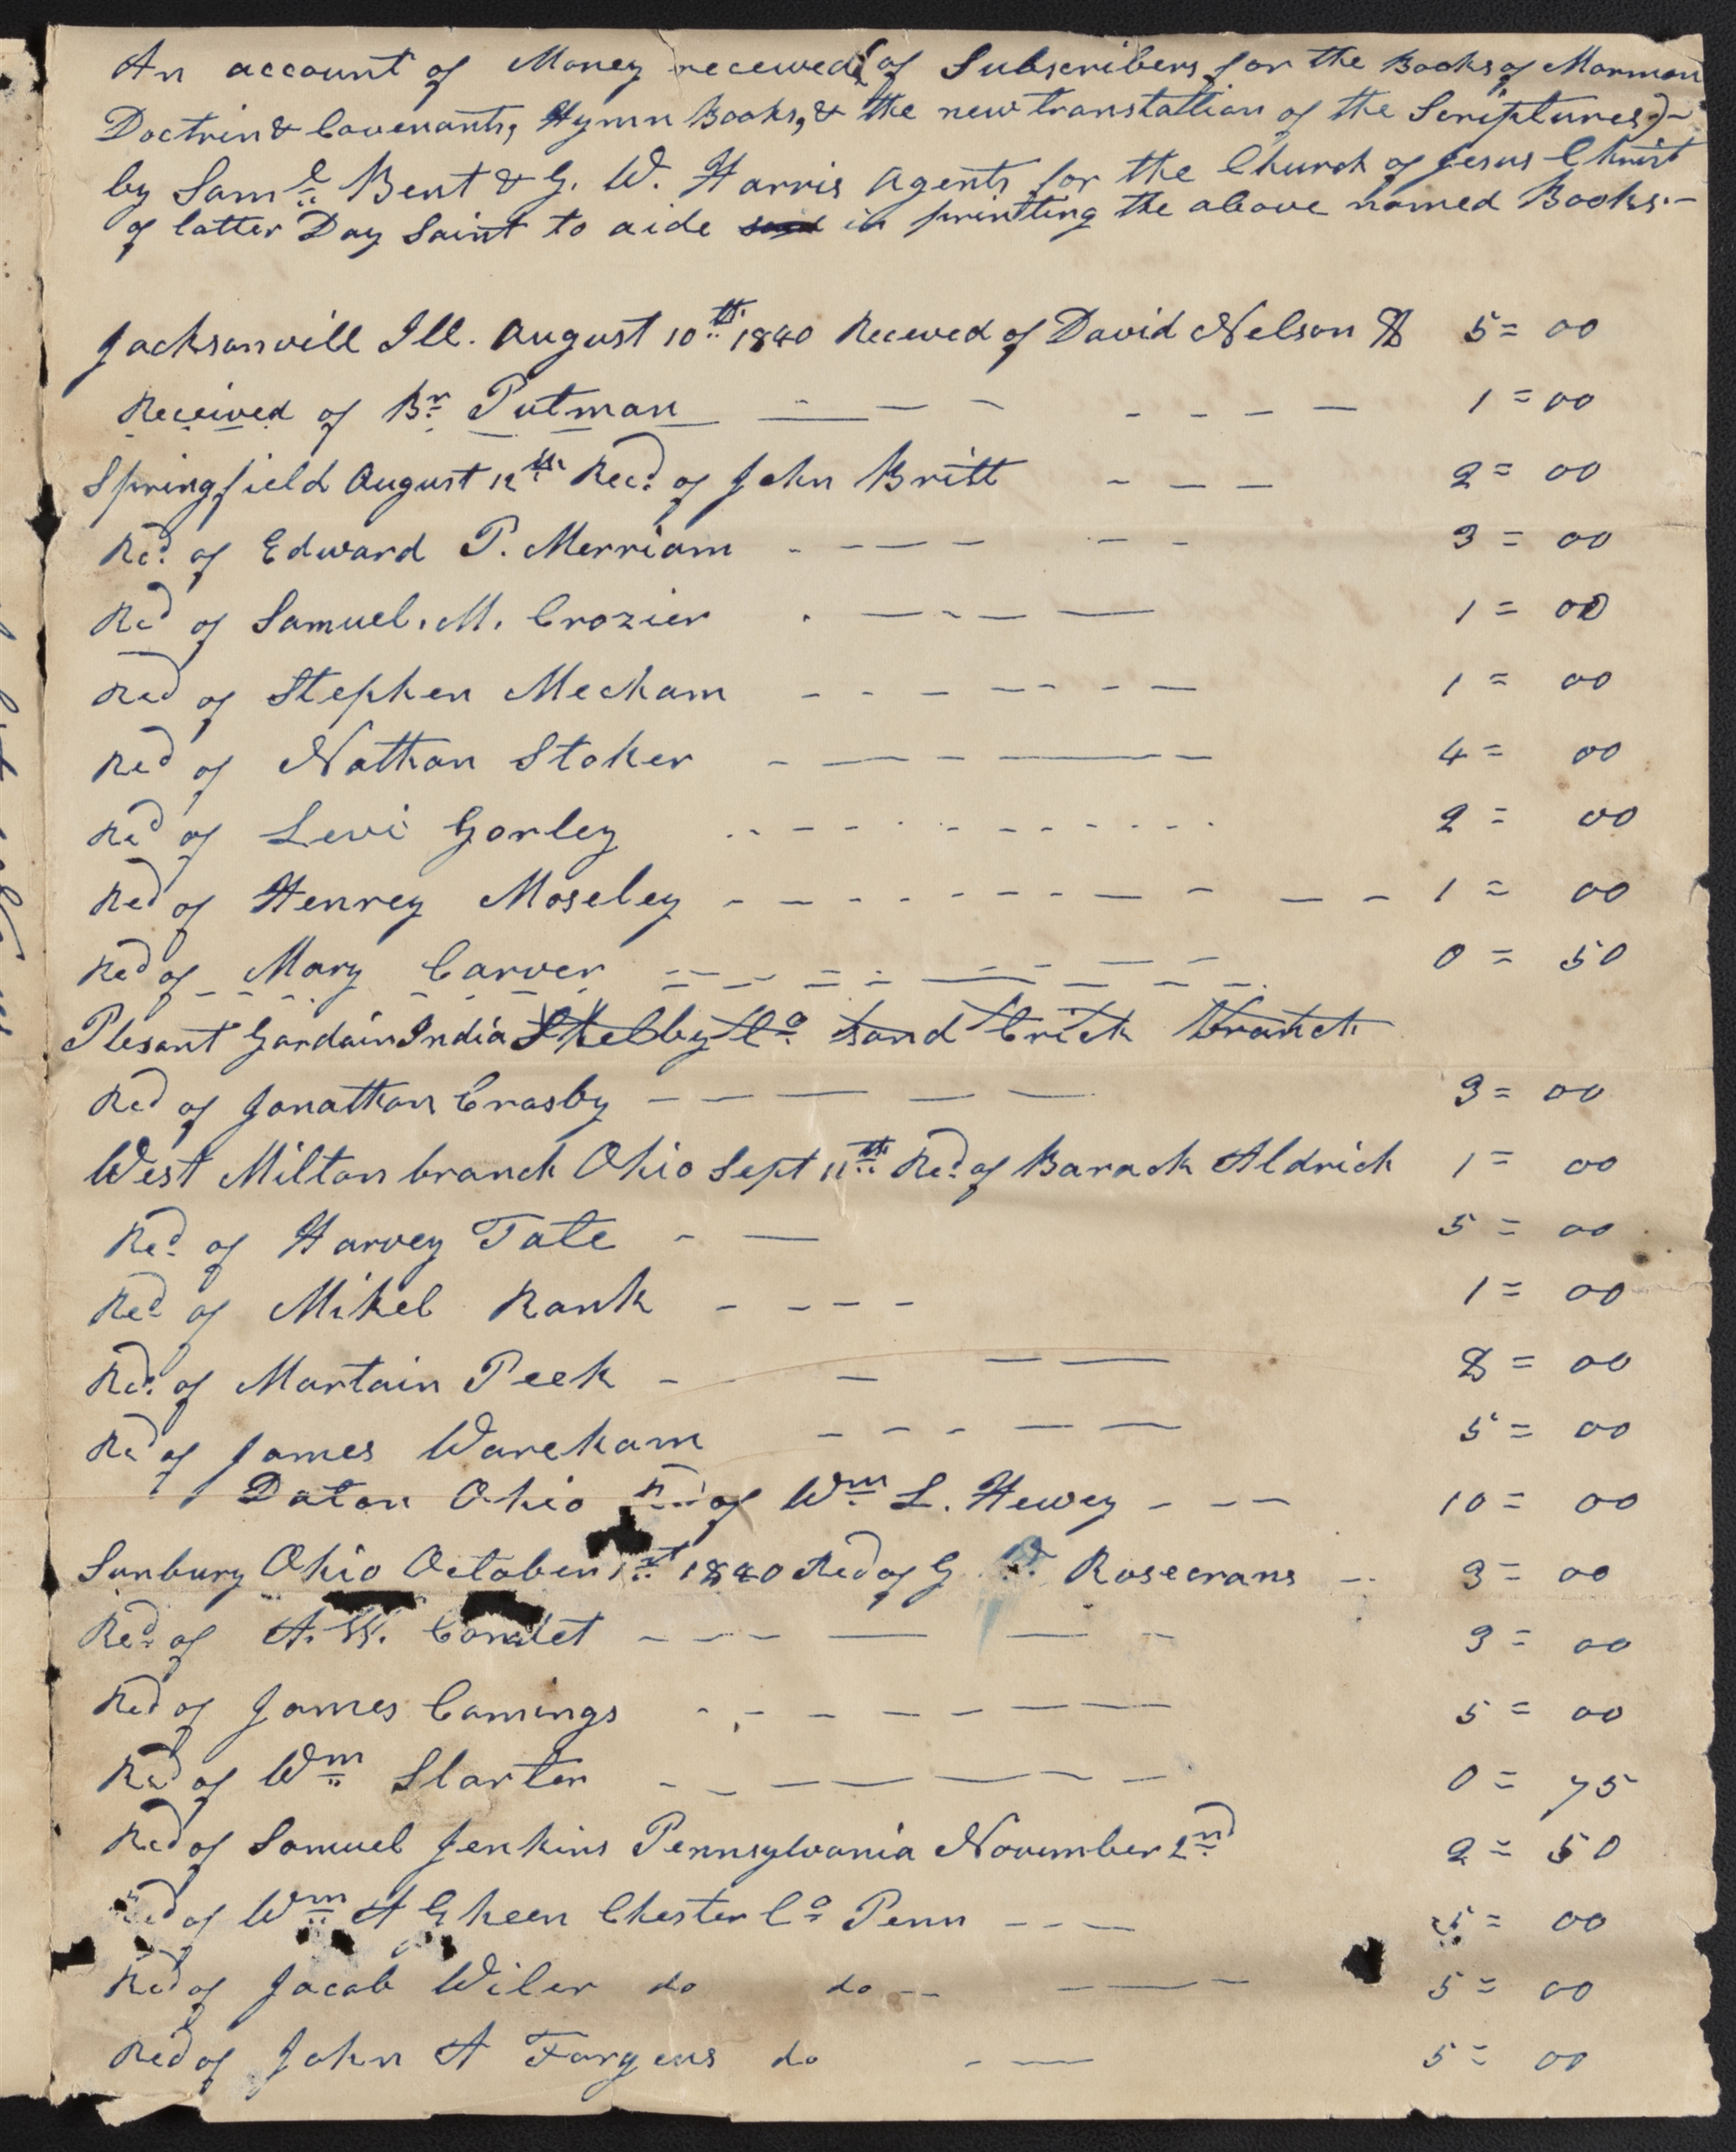 An account of Money received (of Subscribers for the Books of Mormon
Doctrin & Covenants, Hymn Books, & the new transtattion of the Scriptures)-
by Saml. Bent & G. W. Harris Agents for the Church of Jesus Christ
of latter Day Saint to aide in printting the above named Books.-
Jacksonvill Ill. August 10th 1840 Received of David Nelson $ 5=00
Received of Br Putman - - - - - - - 1=00
Springfield August 12th Recd. of John Britt - - - 2=00
Recd. of Edward P. Merriam - - - - - - 3=00
Recd of Samuel. M. Crozier - - - - - 1=00
Recd of Stephen Mecham - - - - - - - 1=00
Recd of Nathan Stoker - - - - - - 4=00
Recd of Levi Gorley - - - - - - - - - 2=00
Recd of Henrey Moseley - - - - - - - - - - 1=00
Recd of Mary Carver - - - - - - - - 0=50
Plesant Gardain India Shelby Co. Sand Crick branch
Recd of Jonathan Crosby - - - - - 3=00
West Milton branch Ohio Sept 11th Recd. of Barack Aldrich 1=00
Recd. of Harvey Tate - - 5=00
Recd of Mikel Rank - - - - 1=00
Recd. of Martain Peek - - - - - 8=00
Recd of James Wareham - - - - - 5=00
Daton Ohio of Wm L. Hewey - - - 10=00
Sunbury Ohio October 1st 1840 Recd of G Rosecrans - 3=00
Recd. of A. W. Condet - - - - - - 3=00
Recd of James Camings - - - - - - - 5=00
Recd of Wm Slarter - - - - - - - 0=75
Recd of Samuel Jenkins Pennsylvania November 2nd 2=50
Recd of Wm A Gheen Chester Co Penn - - - 5=00
Recd of Jacob Wiler do do - - - - 5=00
Recd of John A Forgeus do - - 5=00